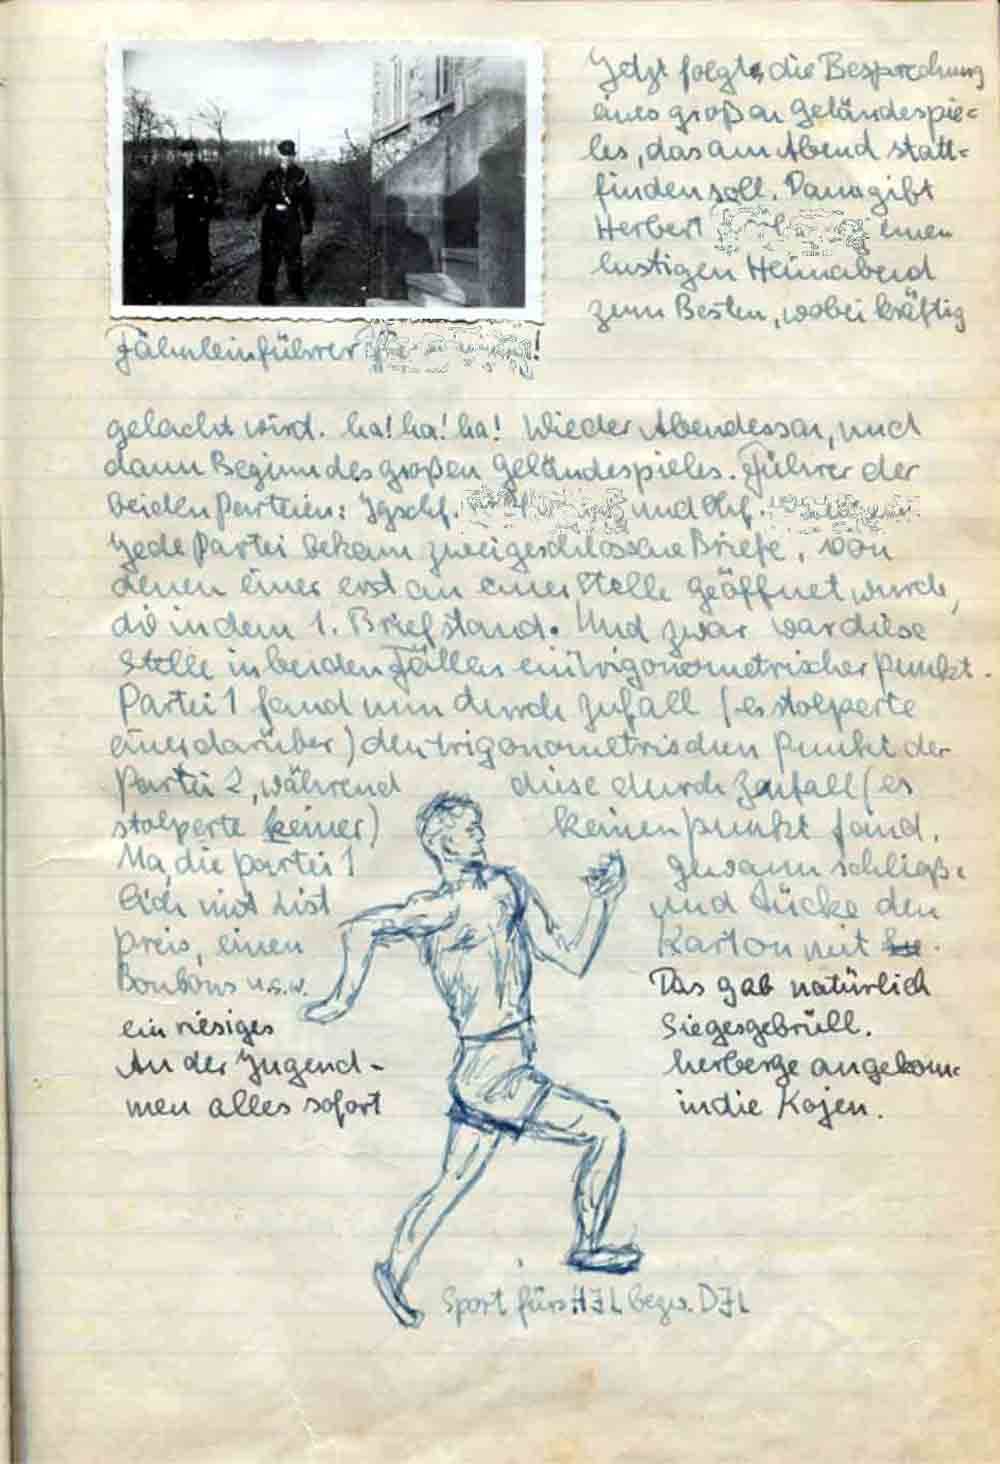 Jetzt folgt die Besprechung
eines großen Geländespie=
les, das am Abend statt=
finden soll. Dann gibt
Herbert einen
lustigen Heimabend
zum Besten, wobei kräftig
Fähnleinführer !
gelacht wird. ha! ha! ha! Wieder Abendessen, und
dann Beginn des großen Geländespieles. Führer der
beiden Parteien: Jgschf. und
Jede Partei bekam zwei geschlossene Briefe, von
denen einer erst an einer Stelle geöffnet wurde,
die in dem 1. Brief stand. Und zwar war diese
Stelle in beiden Fällen ein trigonometrischer Punkt.
Partei 1 fand nun durch Zufall (es stolperte
einer darüber) den trigonometrischen Punkt der
Partei 2, während diese durch Zufall (es
stolperte keiner) keinen Punkt fand.
Na, die Partei 1 gewann schließ=
lich mit List und Tücke den
Preis, einen Karton mit
Bonbons u.s.w. Das gab natürlich
ein riesiges Siegesgebrüll.
An der Jugend- herberge angekom=
men alles sofort in die Kojen.
Sport fürs HJL bezw. DJL